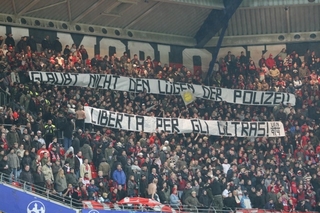 GLAUBT NICHT DEN LÜGEN DER POLIZEI!
LIBERTA PER GLI ULTRAS!